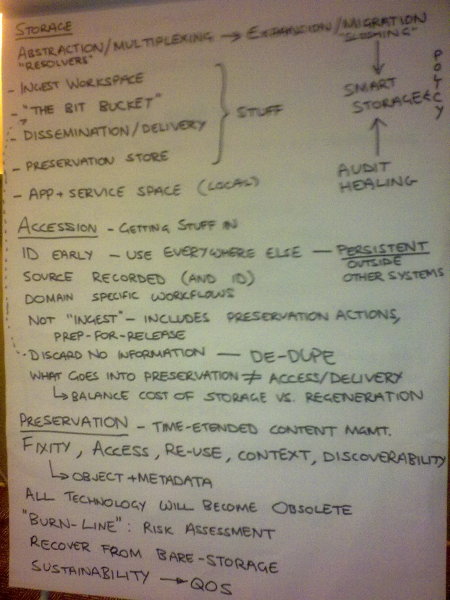 STORAGE
ABSTRACTION/MULTIPLEXING → EXPANSION/MIGRATION
"RESOLVERS" "SLOSHING"
- INGEST WORKSPACE
- "THE BIT BUCKET"
- DISSEMINATION/DELIVERY
- PRESERVATION STORE
} STUFF
SMART
STORAGE
POLICY
AUDIT
HEALING
- APP + SERVICE SPACE (LOCAL)
ACCESSION - GETTING STUFF IN
ID EARLY - USE EVERYWHERE ELSE — PERSISTENT
OUTSIDE
OTHER SYSTEMS
SOURCE RECORDED (AND ID)
DOMAIN SPECIFIC WORKFLOWS
NOT "INGEST" - INCLUDES PRESERVATION ACTIONS,
PREP-FOR-RELEASE
DISCARD NO INFORMATION — DE-DUPE
WHAT GOES INTO PRESERVATION ≠ ACCESS/DELIVERY
↳ BALANCE COST OF STORAGE VS. REGENERATION
PRESERVATION - TIME-ETENDED CONTENT MGMT.
FIXITY, ACCESS, RE-USE, CONTEXT, DISCOVERABILITY
↳ OBJECT + METADATA
ALL TECHNOLOGY WILL BECOME OBSOLETE
"BURN-LINE": RISK ASSESSMENT
RECOVER FROM BARE-STORAGE
SUSTAINABILITY → QOS